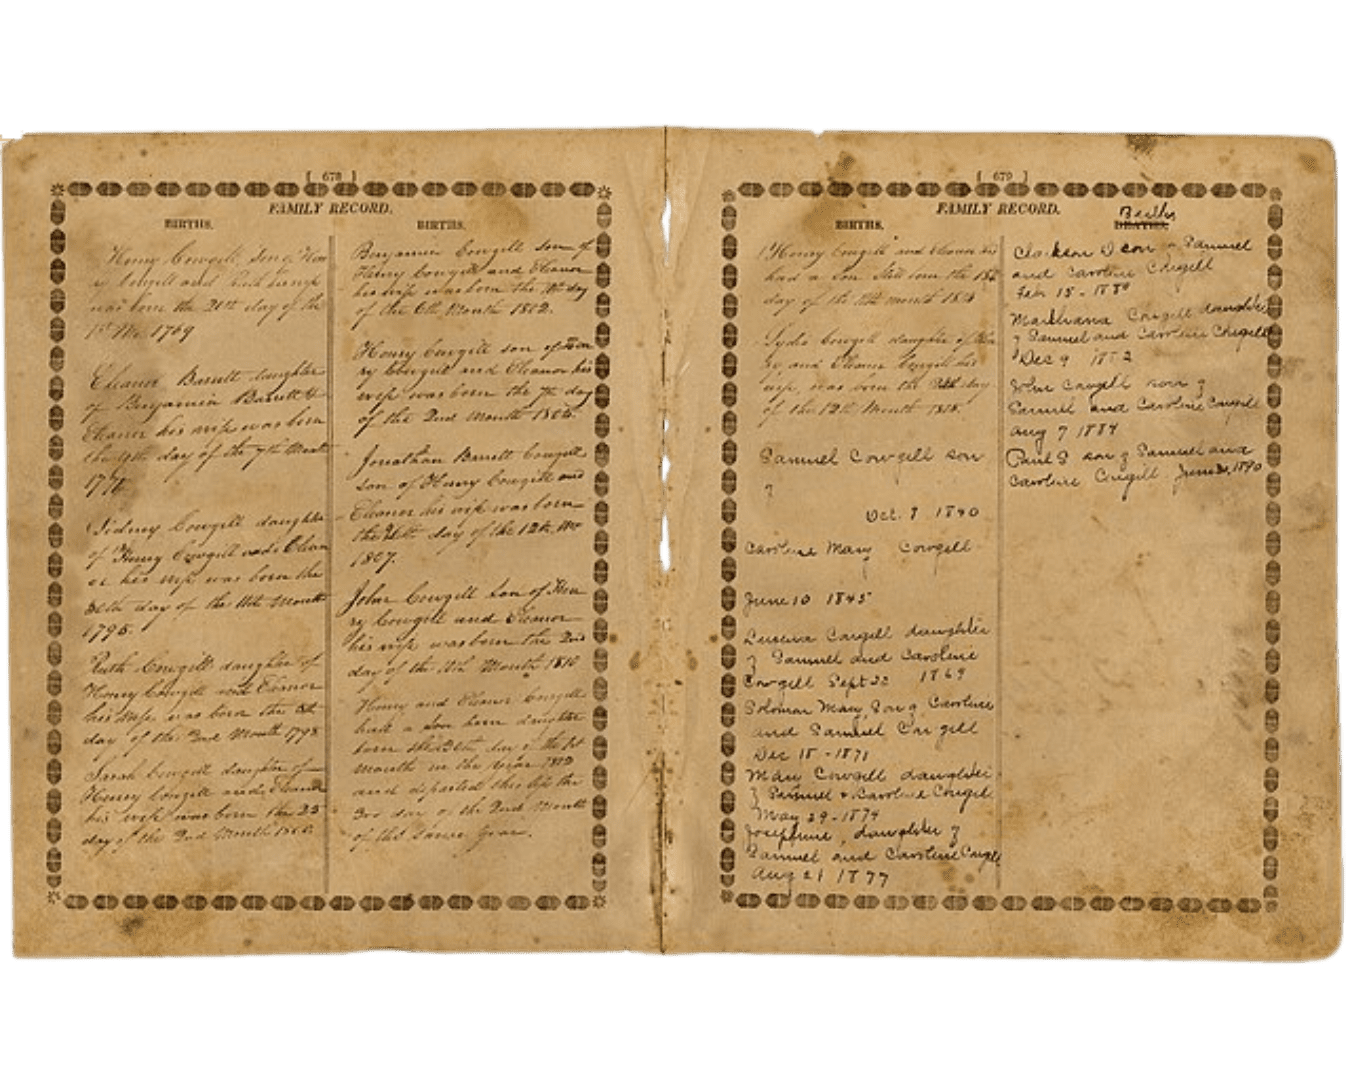 [ 678 ]
FAMILY RECORD.
BIRTHS.
Henry Cowgill, Son of Hen
ry Cowgill and Ruth his wife
was born the 21st day of the
1st Mo. 1769
Eleanor Barratt daughter
of Benjamin Barratt &
Eleanor his wife was born
the day of the 7th Month
Sidney Cowgill daughter
of Henry Cowgill and Elean
or his wife was born the
day of the 11th Month
1795.
Ruth Cowgill daughter of
Henry Cowgill and Eleanor
his wife was born the
day of the 2nd Month 1798
Sarah Cowgill daughter of
Henry Cowgill and Eleanor
his wife was born the 25
day of the 2nd Month 1800.
BIRTHS.
Benjamin Cowgill son of
Henry Cowgill and Eleanor
his wife was born the day
of the 6th Month 1802.
Henry Cowgill son of Hen
ry Cowgill and Eleanor his
wife was born the 7th day
of the 2nd Month
Jonathan Barratt Cowgill
son of Henry Cowgill and
Eleanor his wife was born
the 26th day of the 12th Mo
1807.
John Cowgill Son of Hen
ry Cowgill and Eleanor
his wife was born the 2nd
day of the 10th Month 1810
Henry and Eleanor Cowgill
had a born daughter
born the day of the 1st
Month in the year
and departed this life the
3rd day of the 2nd Month
of the same year.
[ 679 ]
FAMILY RECORD.
BIRTHS.
Henry Cowgill and Eleanor his
had a Son Still born the
day of the Month
Lydia Cowgill daughter of Hen
ry and Eleanor Cowgill his
wife, was born the day
of the 12th Month
Samuel Cowgill son
?
Oct. 8 1840
Caroline May Cowgill
June 10 1845
Cowgill daughter
of Samuel and Caroline
Cowgill Sept 22 1869
Soloman May, Son of Caroline
and Samuel Cowgill
Dec 18 - 1871
Mary Cowgill daughter
of Samuel & Caroline Cowgill
May 29 - 1874
Josephine, daughter of
Samuel and Caroline Cowgill
Aug 21 1877
Births
DEATHS.
Clarkson son of Samuel
and Caroline Cowgill
Feb 15 - 1880
Marthana Cowgill daughter
of Samuel and Caroline Cowgill
Dec 9 1882
John Cowgill son of
Samuel and Caroline Cowgill
Aug 7 1884
Paul S son of Samuel and
Caroline Cowgill June 1890